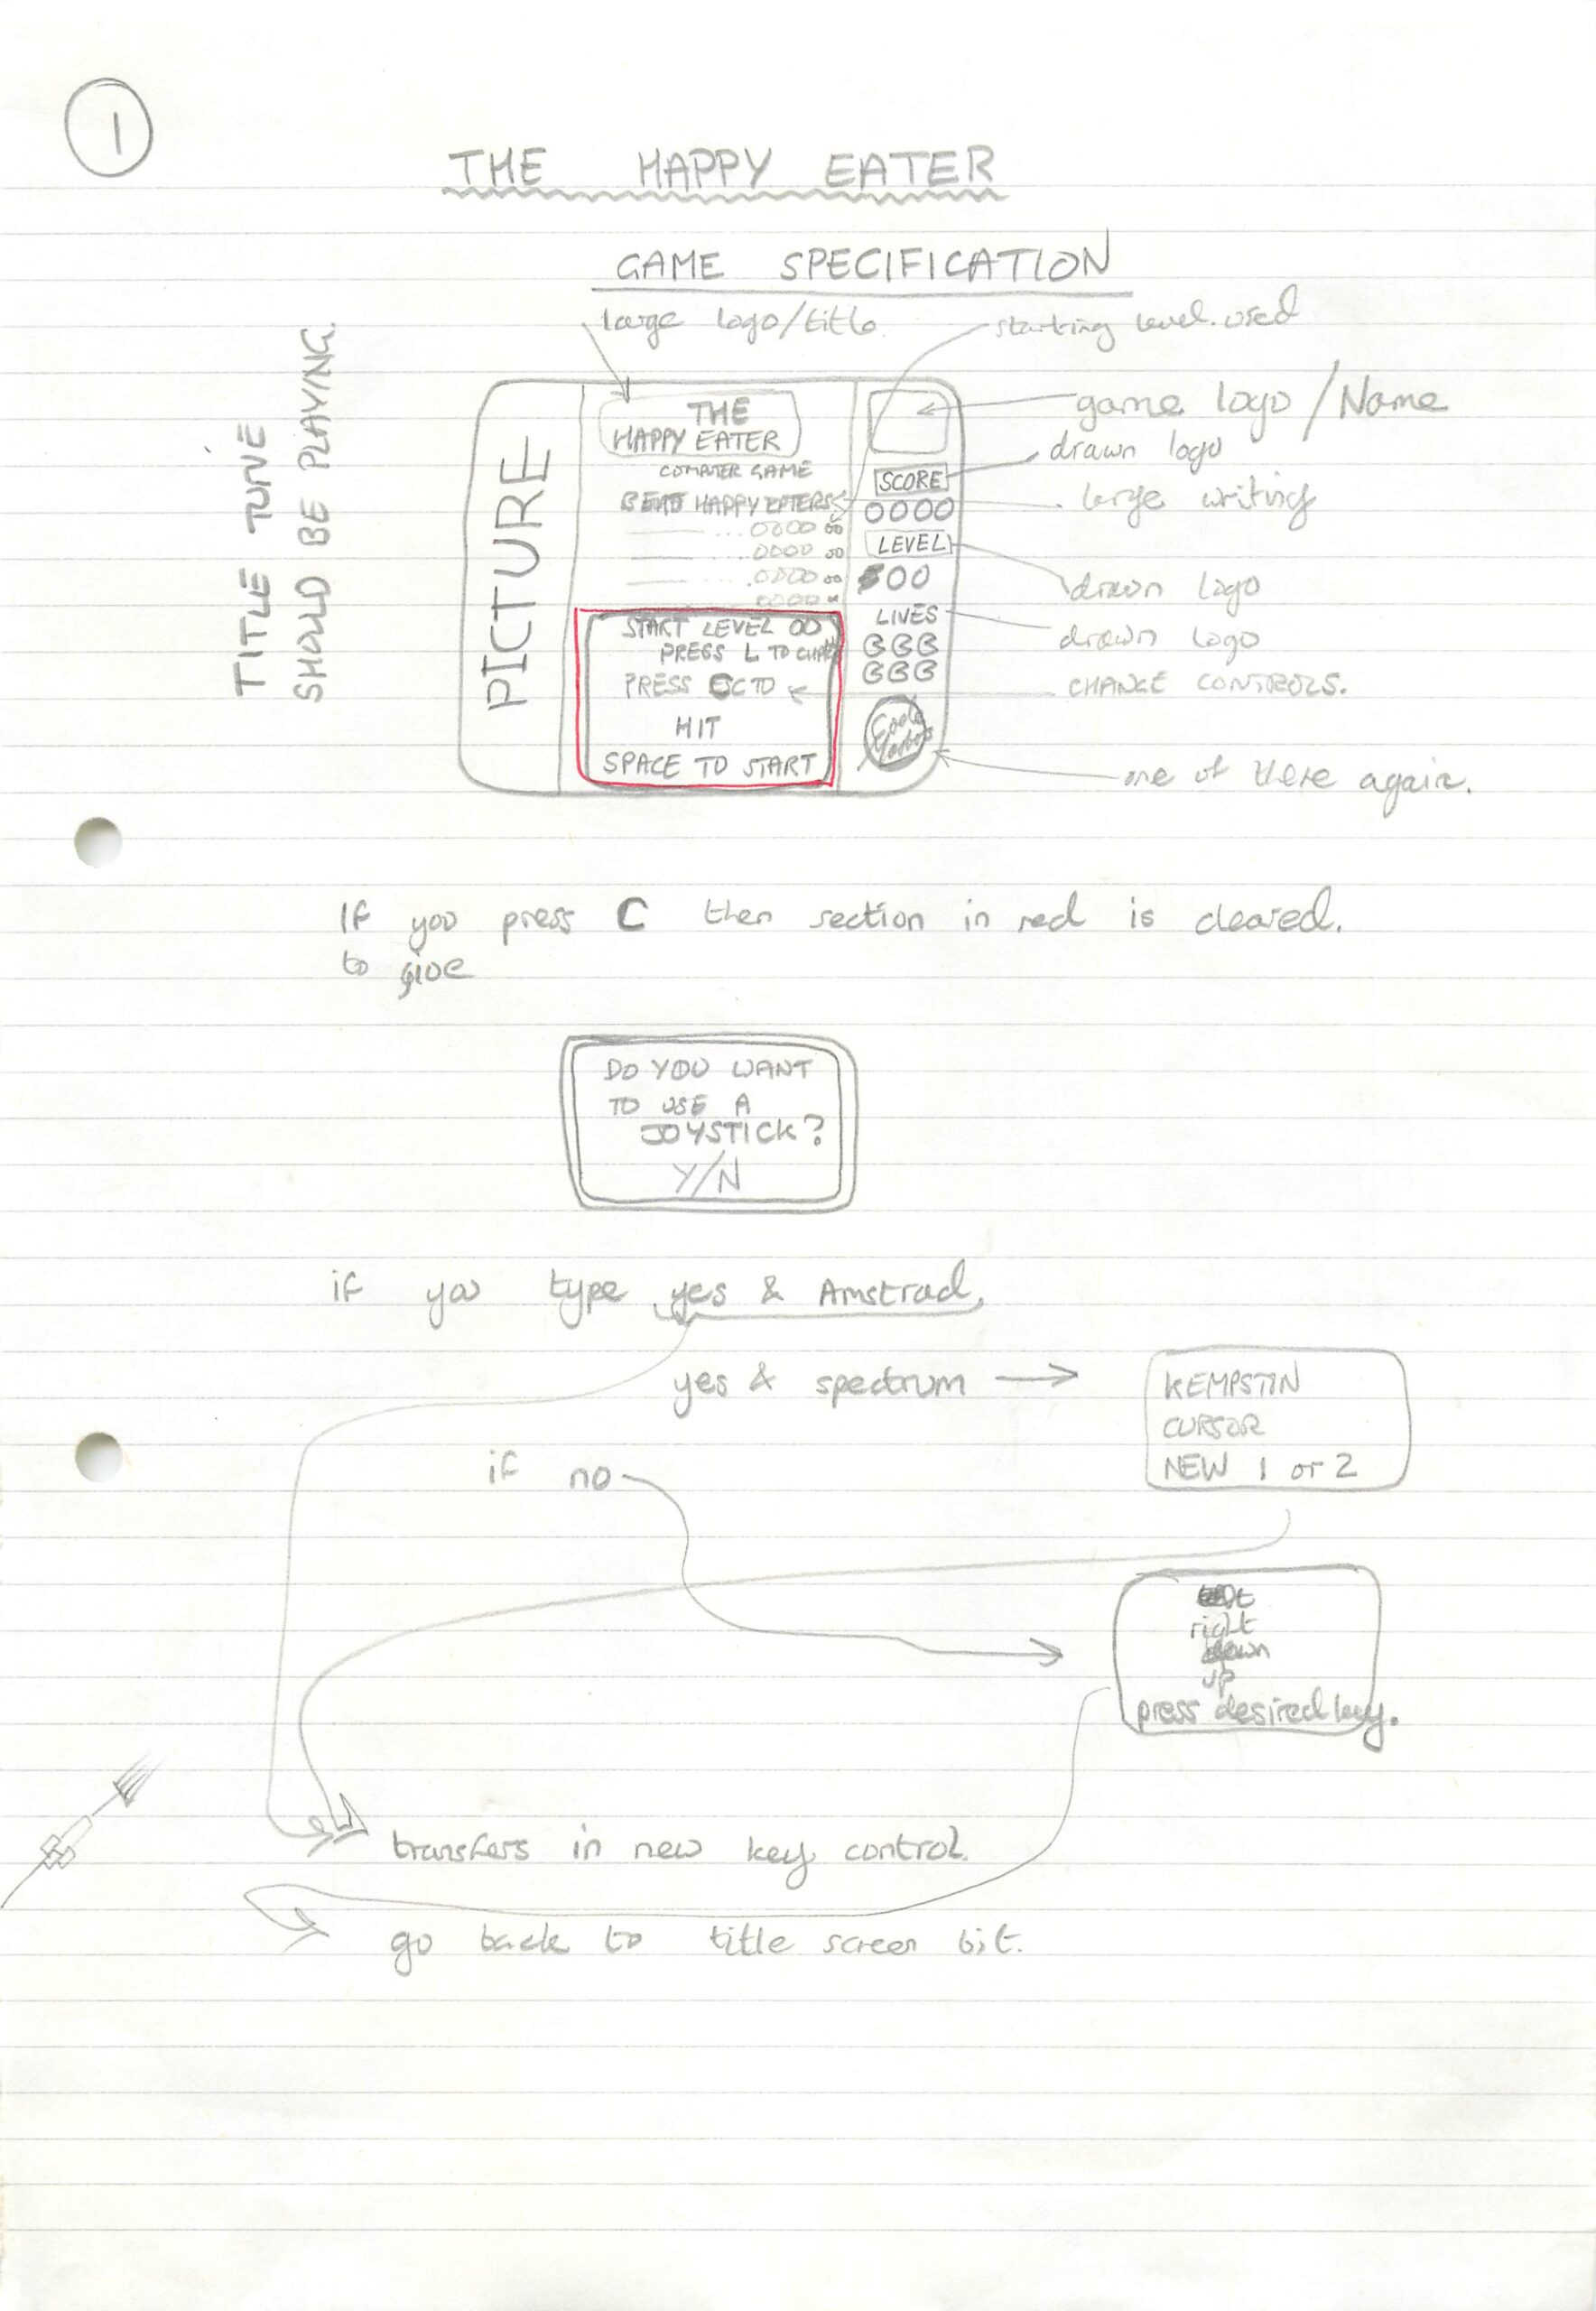 1
THE HAPPY EATER
GAME SPECIFICATION
large logo/title
starting level used
TITLE TUNE
SHOULD BE PLAYING.
PICTURE
THE
HAPPY EATER
COMPUTER GAME
BEST HAPPY EATERS
... 0000 00
... 0000 00
... 0000 00
0000
START LEVEL 00
PRESS L TO
PRESS C TO
HIT
SPACE TO START
SCORE
0000
LEVEL
00
LIVES
Code
Masters
game logo / Name
drawn logo
large writing
drawn logo
drawn logo
CHANGE CONTROLS.
one of there again.
If you press C then section in red is cleared.
to give
DO YOU WANT
TO USE A
JOYSTICK?
Y/N
if you type yes & Amstrad,
yes & spectrum
KEMPSTIN
CURSOR
NEW 1 or 2
if no
right
down
up
press desired key.
transfers in new key control.
go back to title screen bit.